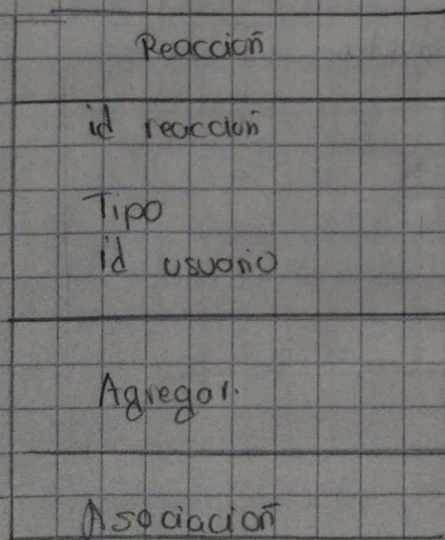 Reacción
id reacción
Tipo
id usuario
Agregar.
Asociación